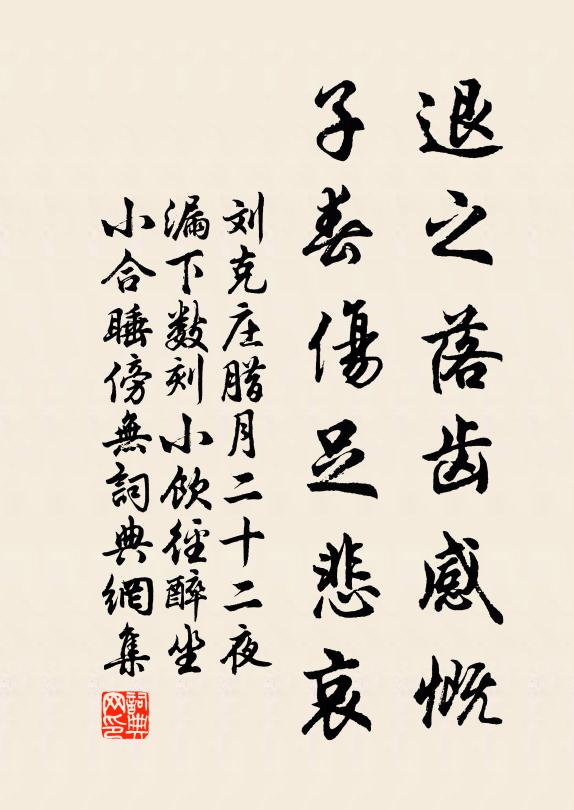 退之落齿感慨
子春傷足悲哀
刘克庄腊月二十二夜
漏下数刻小飲徑醉坐
小合睡傍無詞典網集
詞典网印